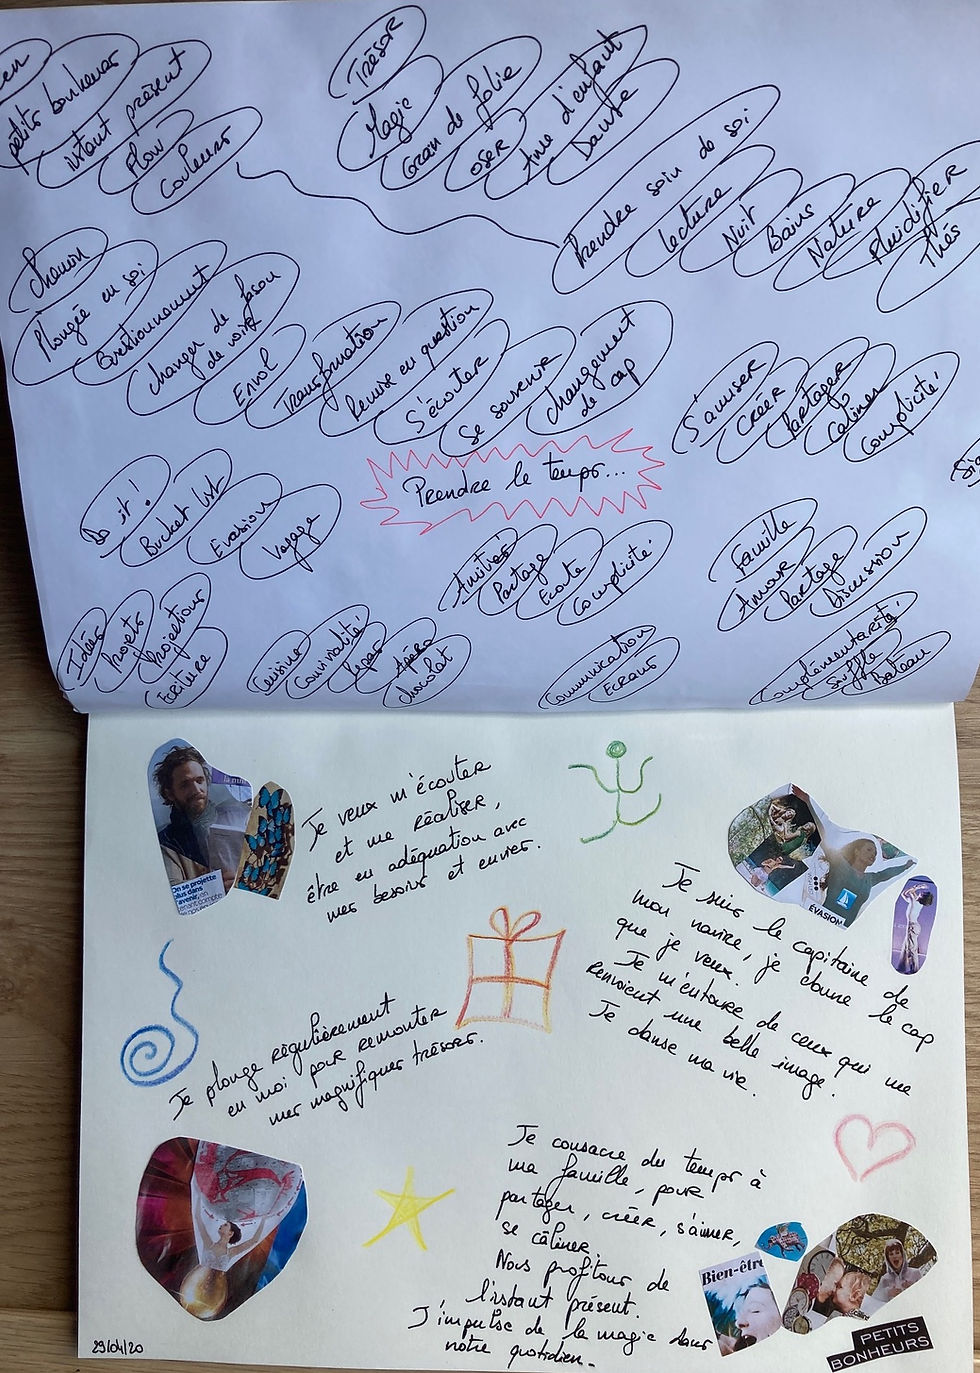 en
petits bonheurs
instant présent
Flow
Couleurs
Trésor
Magie
Grain de folie
OSER
Âme d'enfant
Danse
Prendre soin de soi
Lecture
Nuit
Bains
Nature
Fluidifier
Thés
Chemin
Plongée en soi
Questionnement
Changer de façon
de voir
Envol
Transformation
Remise en question
S'écouter
Se souvenir
Changement
de cap
S'amuser
Créer
Partager
Câliner
Complicité
Prendre le temps...
Do it!
Bucket list
Evasion
Voyage
Amitiés
Partage
Ecoute
Complicité
Famille
Amour
Partage
Discussion
Idées
Projets
Projections
Ecriture
Cuisine
Convivialité
Repas
Apéro
Chocolat
Communication
Ecrans
Complémentarité
Souffle
Bateau
On se projette
plus dans
l'avenir, en
tenant compte
Je veux m'écouter
et me réaliser,
être en adéquation avec
mes besoins et envies.
ÉVASION
Je suis le capitaine de
mon navire, je donne le cap
que je veux.
Je m'entoure de ceux qui me
renvoient une belle image.
Je danse ma vie.
Je plonge régulièrement
en moi pour remonter
mes magnifiques trésors.
Je consacre du temps à
ma famille, pour
partager, créer, s'aimer,
se câliner.
Nous profitons de
l'instant présent.
J'impulse de la magie dans
notre quotidien.
Bien-être
PETITS
BONHEURS
29/04/20